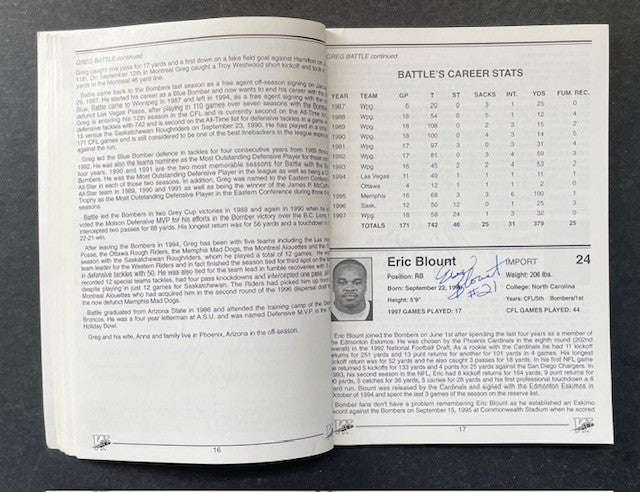 GREG BATTLE continued
Greg caught one pass for 17 yards and a first down on a fake field goal against Hamilton on
11th. On September 12th in Montreal Greg caught a Troy Westwood short kickoff and took it
yards to the Montreal 46 yard line.
Battle came back to the Bombers last season as a free agent off-season signing on
29, 1997. He started his career as a Blue Bomber and now wants to end his career with the
Blue. Battle came to Winnipeg in 1987 and left in 1994, as a free agent signing with the
defunct Las Vegas Posse, after playing in 110 games over seven seasons with the
Greg is entering his 12th season in the CFL and is currently second on the All-Time list
defensive tackles with 742 and is second on the All-Time list for defensive tackles in a game
13 versus the Saskatchewan Roughriders on September 23, 1990. He has played in a total
171 CFL games and is still considered to be one of the best linebackers in the league
against the run.
Greg led the Blue Bomber defence in tackles for four consecutive years from 1989 through
1992. He was also the teams nominee as the Most Outstanding Defensive Player for those
four years. 1990 and 1991 are the two most memorable seasons for Battle with the
Bombers. He was the Most Outstanding Defensive Player in the league as well as being a
All-Star in each of those two seasons. In addition, Greg was named to the Eastern Conference
All-Star team in 1989, 1990 and 1991 as well as being the winner of the James P. McCaffrey
Trophy as the Most Outstanding Defensive Player in the Eastern Conference during those
seasons.
Battle led the Bombers in two Grey Cup victories in 1988 and again in 1990 when he was
voted the Molson Defensive MVP for his efforts in the Bomber victory over the B.C. Lions,
intercepted two passes for 88 yards. His longest return was for 56 yards and a touchdown in
22-21 win.
After leaving the Bombers in 1994, Greg has been with five teams including the Las Vegas
Posse, the Ottawa Rough Riders, the Memphis Mad Dogs, the Montreal Alouettes and the
season with the Saskatchewan Roughriders, whom he played a total of 12 games. He was
team leader for the Western Riders and in fact finished the season tied for third spot on the
in defensive tackles with 50. He was also tied for the team lead in fumble recoveries with
recorded 12 special teams tackles, had four pass knockdowns and intercepted one pass
despite playing in just 12 games for Saskatchewan. The Riders had picked him up from
Montreal Alouettes who had acquired him in the second round of the 1996 dispersal draft
the now defunct Memphis Mad Dogs.
Battle graduated from Arizona State in 1986 and attended the training camp of the Denver
Broncos. He was a four year letterman at A.S.U. and was named Defensive MVP in the
Holiday Bowl.
Greg and his wife, Anna and family live in Phoenix, Arizona in the off-season.
16
GREG BATTLE continued
BATTLE'S CAREER STATS
YEAR TEAM GP T ST SACKS INT. YDS FUM. REC.
1987 Wpg. 6 20 0 3 1 25 0
1988 Wpg. 18 54 0 5 1 12 4
1989 Wpg. 18 108 0 2 3 15 2
1990 Wpg. 18 100 0 4 3 14 5
1991 Wpg. 17 97 3 0 3 31 4
1992 Wpg. 17 81 0 3 4 59 3
1993 Wpg. 16 45 2 2 4 53 2
1994 Las Vegas 11 49 1 1 1 11 1
Ottawa 4 12 1 1 1 2 0
1995 Memphis 16 68 3 3 6 100 1
1996 Sask. 12 50 12 0 1 25 3
1997 Wpg. 18 58 24 1 3 32 0
TOTALS 171 742 46 25 31 379 25
Eric Blount IMPORT 24
Position: RB Weight: 206 lbs.
Born: September 22, College: North Carolina
Height: 5'9" Years: CFL/5th Bombers/1st
1997 GAMES PLAYED: 17 CFL GAMES PLAYED: 44
Eric Blount
#21
Eric Blount joined the Bombers on June 1st after spending the last four years as a member of
the Edmonton Eskimos. He was chosen by the Phoenix Cardinals in the eighth round (202nd
overall) in the 1992 National Football Draft. As a rookie with the Cardinals he had 11 kickoff
returns for 251 yards and 13 punt returns for another 101 yards in 4 games. His longest
kickoff return was for 52 yards and he also caught 3 passes for 18 yards. In his first NFL game
he returned 5 kickoffs for 133 yards and 4 punts for 25 yards against the San Diego Chargers. In
1993, his second season in the NFL, Eric had 8 kickoff returns for 164 yards, 9 punt returns for
yards, 5 catches for 36 yards, 5 carries for 28 yards and his first professional touchdown a 6
yard run. Blount was released by the Cardinals and signed with the Edmonton Eskimos in
October of 1994 and spent the last 3 games of the season on the reserve list.
Bomber fans don't have a problem remembering Eric Blount as he established an Eskimo
record against the Bombers on September 15, 1995 at Commonwealth Stadium when he scored
17